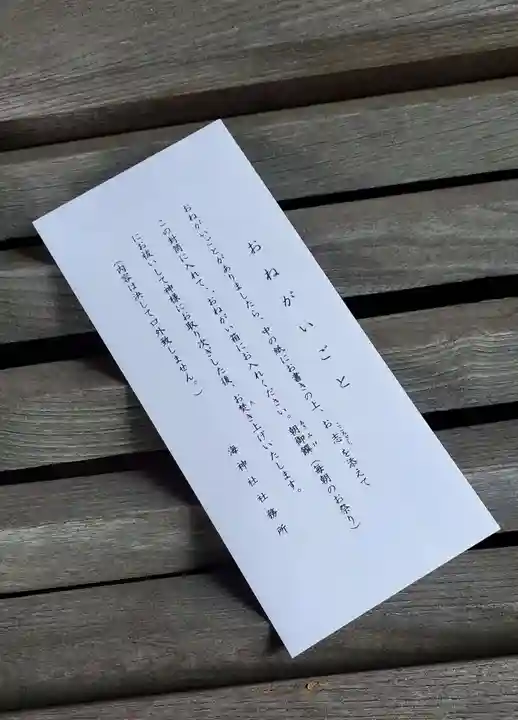 おねがいごと
おねがいごとがありましたら、中の紙にお書きの上、お志を添えて
この封筒に入れて、おねがい箱にお入れください。朝御饌(毎朝のお祭り)
にお祓いして神様にお取り次ぎした後、お焚き上げいたします。
(内容は決して口外致しません。)
海神社社務所